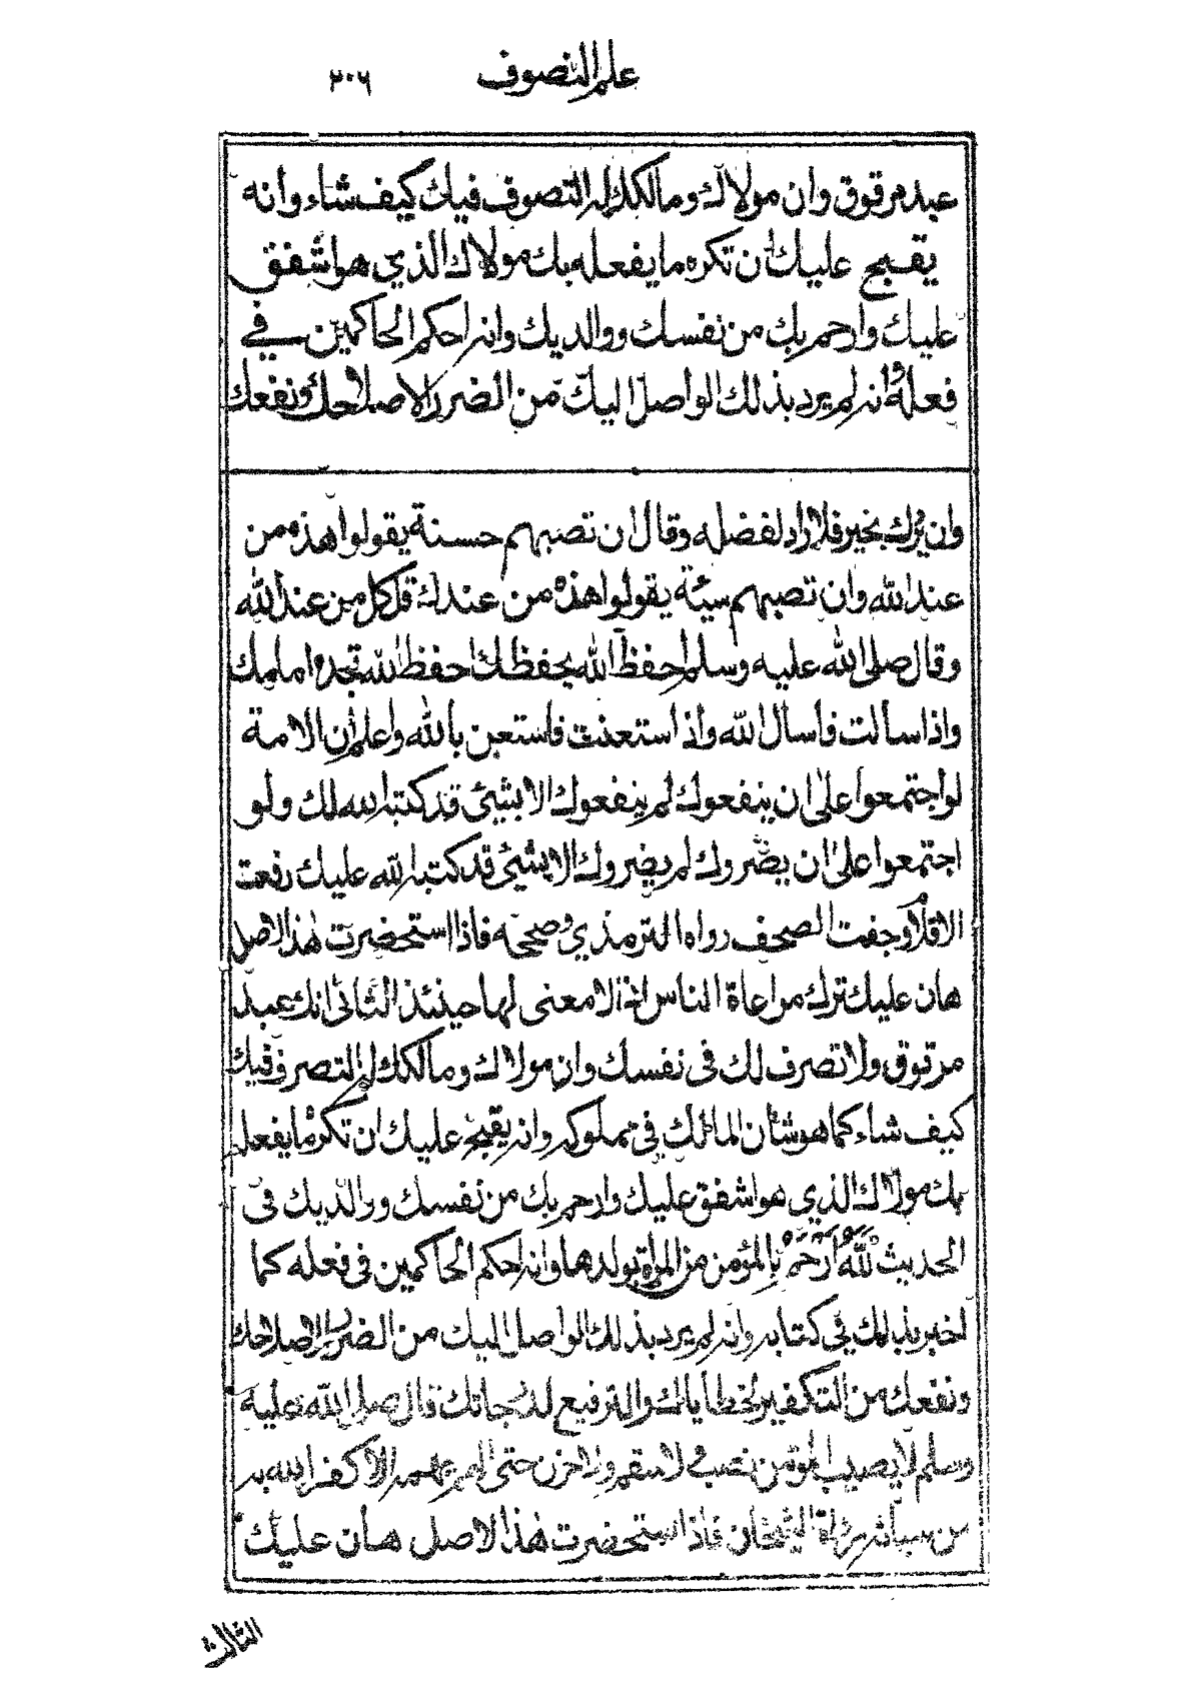 علم التصوف ٢٠٦
عبد مرقوق وان مولاك ومالكك له التصرف فيك كيف شاء وانه
يقبح عليك ان تكره ما يفعله بك مولاك الذي هو اشفق
عليك وارحم بك من نفسك ووالديك وانه احكم الحاكمين في
فعله وانه لم يرد بذلك الواصل اليك من الضرر الا صلاحك ونفعك
وان يردك بخير فلا راد لفضله وقال ان تصبهم حسنة يقولوا هذه من
عند الله وان تصبهم سيئة يقولوا هذه من عندك قل كل من عند الله
وقال صلى الله عليه وسلم احفظ الله يحفظك احفظ الله تجده امامك
واذا سألت فاسأل الله واذا استعنت فاستعن بالله واعلم ان الامة
لو اجتمعوا على ان ينفعوك لم ينفعوك الا بشيئ قد كتبه الله لك ولو
اجتمعوا على ان يضروك لم يضروك الا بشيئ قد كتبه الله عليك رفعت
الاقلام وجفت الصحف رواه الترمذي وصححه فاذا استحضرت هذا الاصل
هان عليك ترك مراعاة الناس اذ لا معنى لها حينئذ الثانى انك عبد
مرقوق ولا تصرف لك فى نفسك وان مولاك ومالكك له التصرف فيك
كيف شاء كما هو شأن المالك في مملوكه وانه يقبح عليك ان تكره ما يفعله
بك مولاك الذي هو اشفق عليك وارحم بك من نفسك ووالديك فى
الحديث لله ارحم بالمؤمن من المرأة بولدها وانه احكم الحاكمين فى فعله كما
اخبر بذلك في كتابه وانه لم يرد بذلك الواصل اليك من الضرر الا صلاحك
ونفعك من التكفير لخطاياك والترفيع لدرجاتك قال صلى الله عليه
وسلم لا يصيب المؤمن نصب ولا سقم ولا حزن حتى الهم يهمه الا كفر الله به
من سيأته رواه الشيخان فاذا استحضرت هذا الاصل هان عليك
الثالث